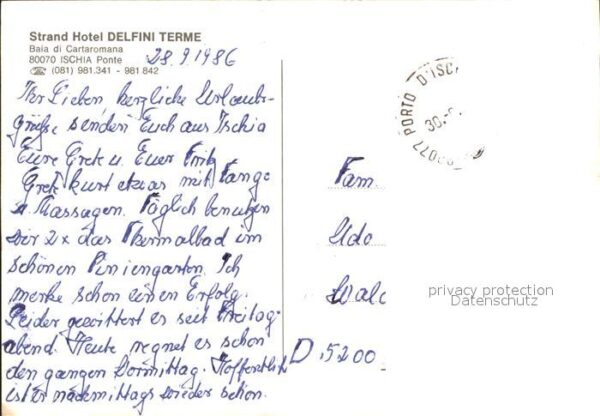 Strand Hotel DELFINI TERME
Baia di Cartaromana
80070 ISCHIA Ponte
☎ (081) 981.341 - 981 842
28.9.1986
Ihr Lieben, herzliche Urlaubs-
grüße senden Euch aus Ischia
Eure Grete u. Euer Fritz
Grete kurt etwas mit Fango
u. Massagen. Täglich benutzen
wir 2x das Thermalbad im
schönen Piniengarten. Ich
merke schon einen Erfolg.
Leider gewittert es seit Freitag-
abend. Heute regnet es schon
den ganzen Vormittag. Hoffentlich
ist er nachmittags wieder schön.
PORTO D'ISC
30.
Fam.
Udo
Wald
D 5200
privacy protection
Datenschutz